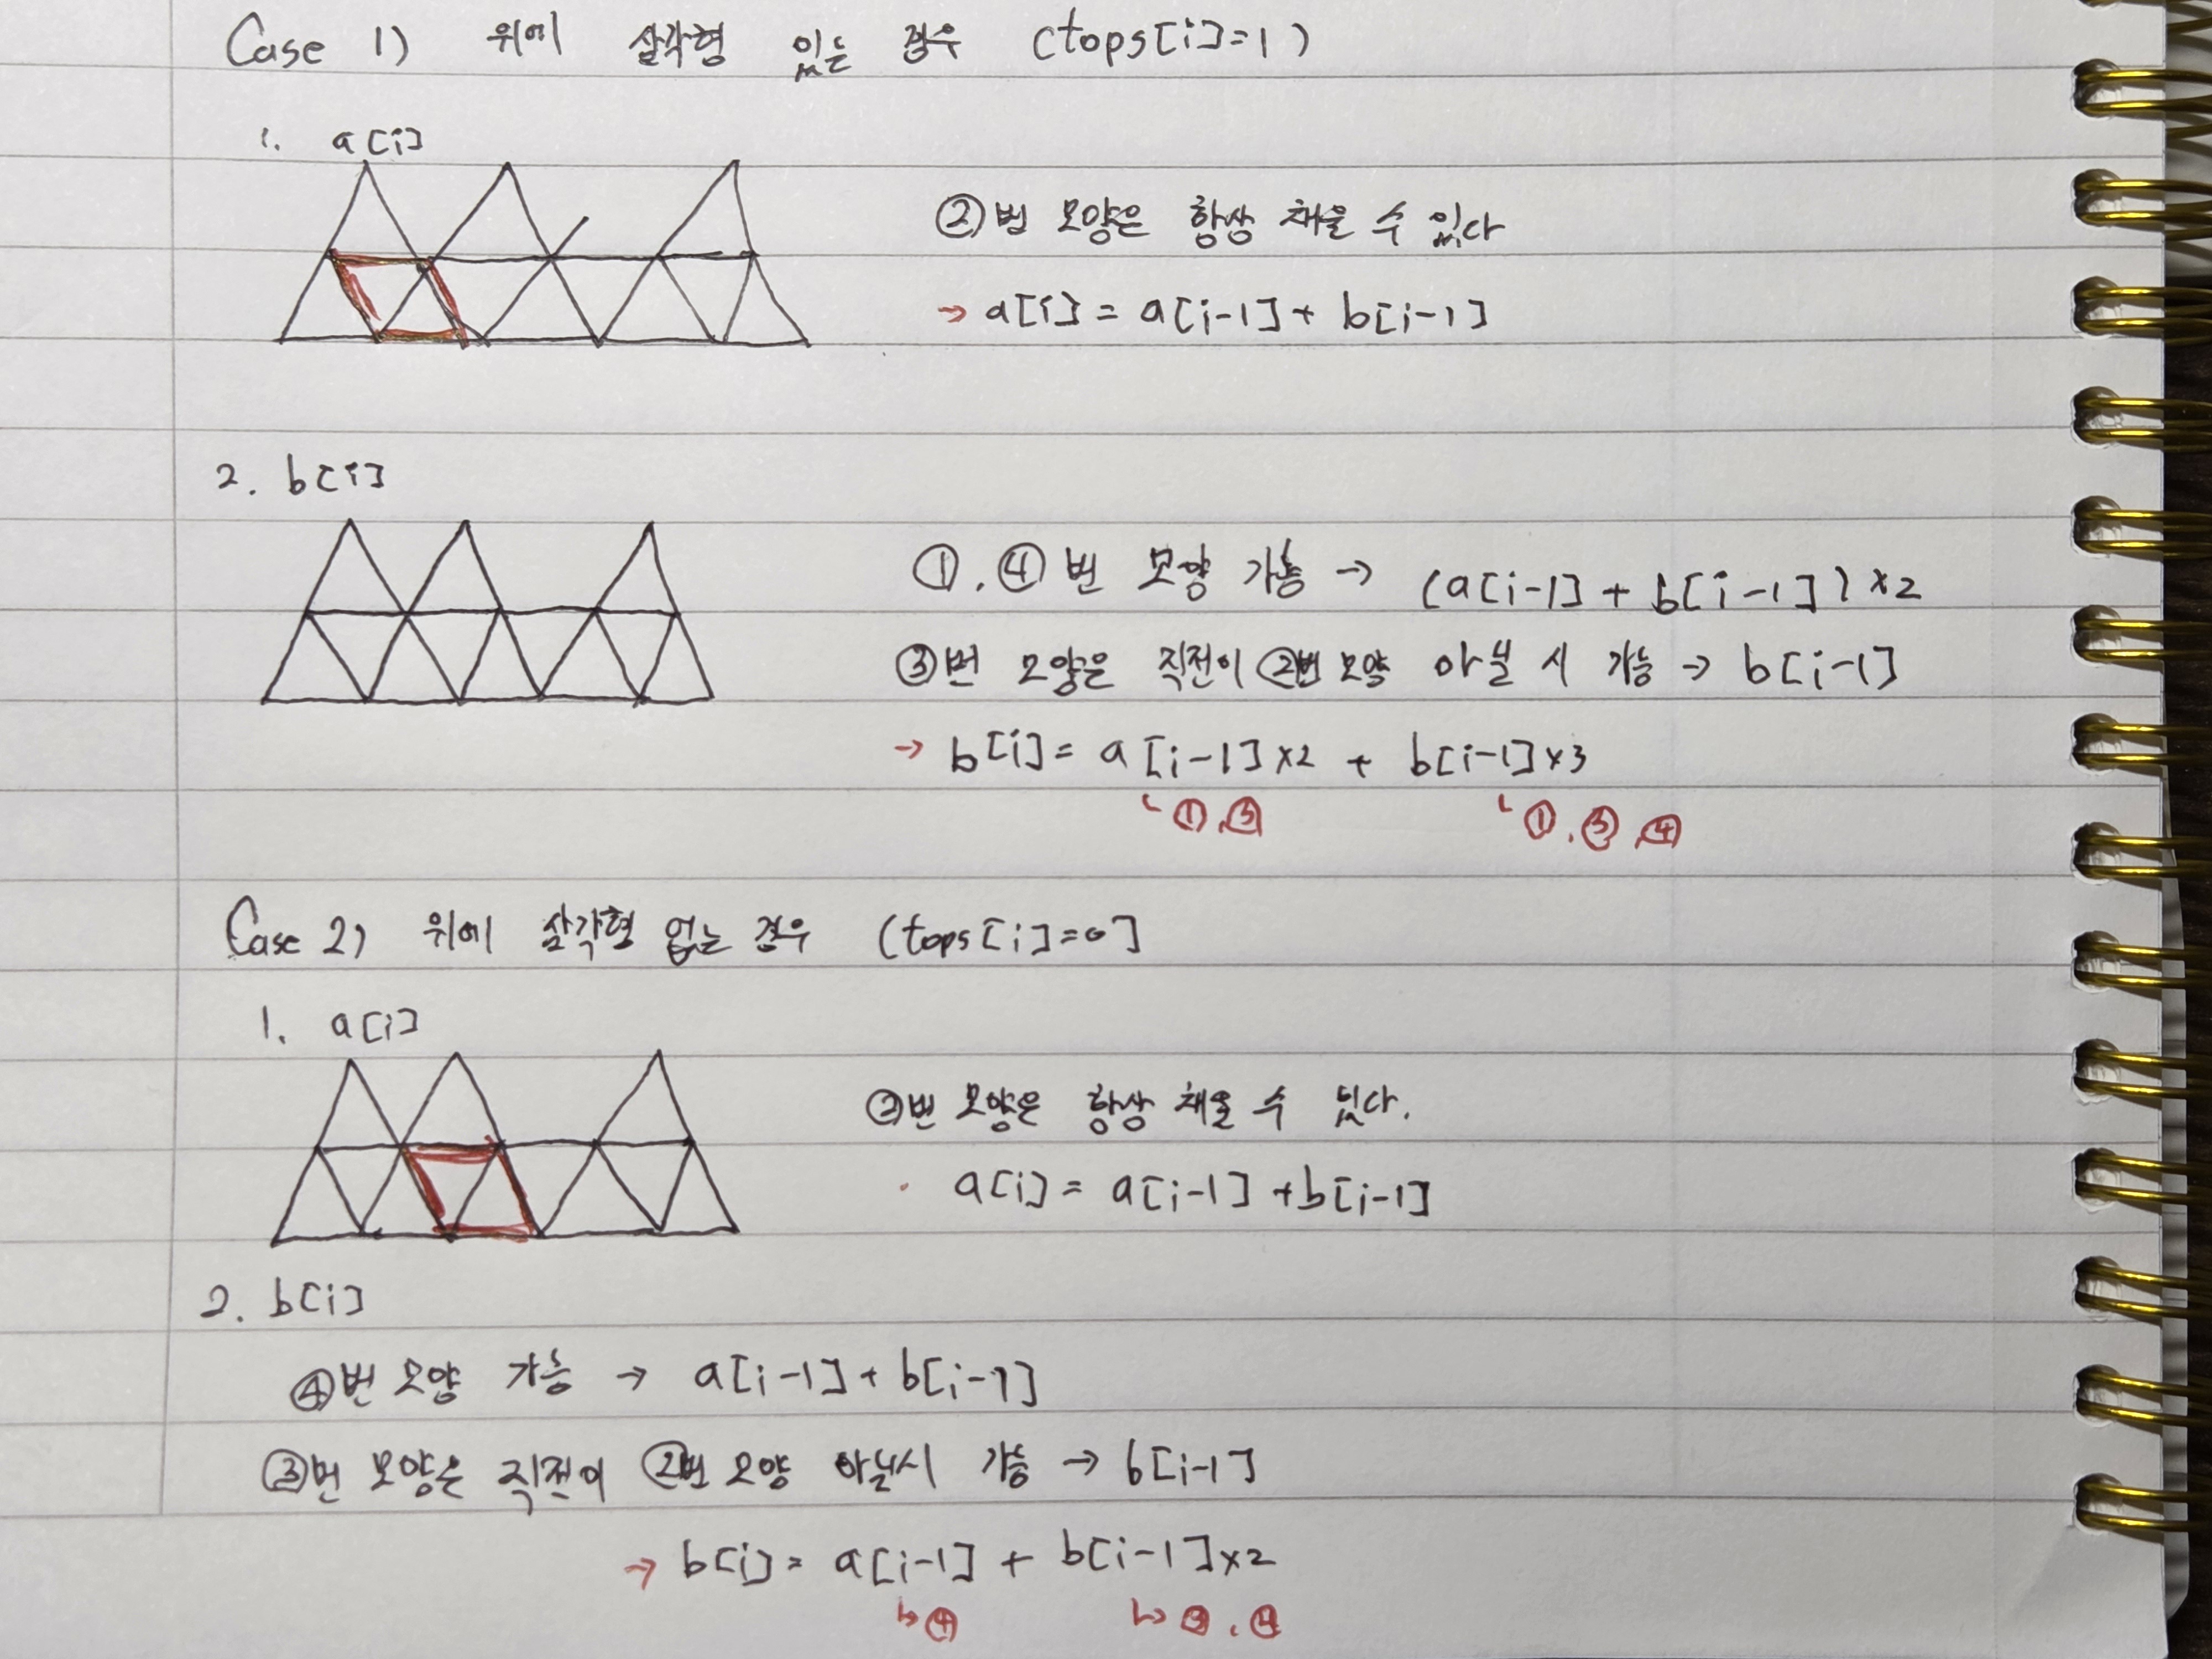 Case 1) 위에 삼각형 있는 경우 (tops[i]=1)
1. a[i]
②번 모양은 항상 채울 수 있다
→ a[i] = a[i-1] + b[i-1]
2. b[i]
①, ④번 모양 가능 → (a[i-1] + b[i-1]) ×2
③번 모양은 직전이 ②번 모양 아닐 시 가능 → b[i-1]
→ b[i] = a[i-1]×2 + b[i-1]×3
①, ③, ④
Case 2) 위에 삼각형 없는 경우 (tops[i]=0]
1. a[i]
②번 모양은 항상 채울 수 있다.
a[i] = a[i-1] + b[i-1]
2. b[i]
④번 모양 가능 → a[i-1] + b[i-1]
③번 모양은 직전이 ②번 모양 아닐시 가능 → b[i-1]
→ b[i] = a[i-1] + b[i-1]×2
↳ ④ ↳ ③, ④